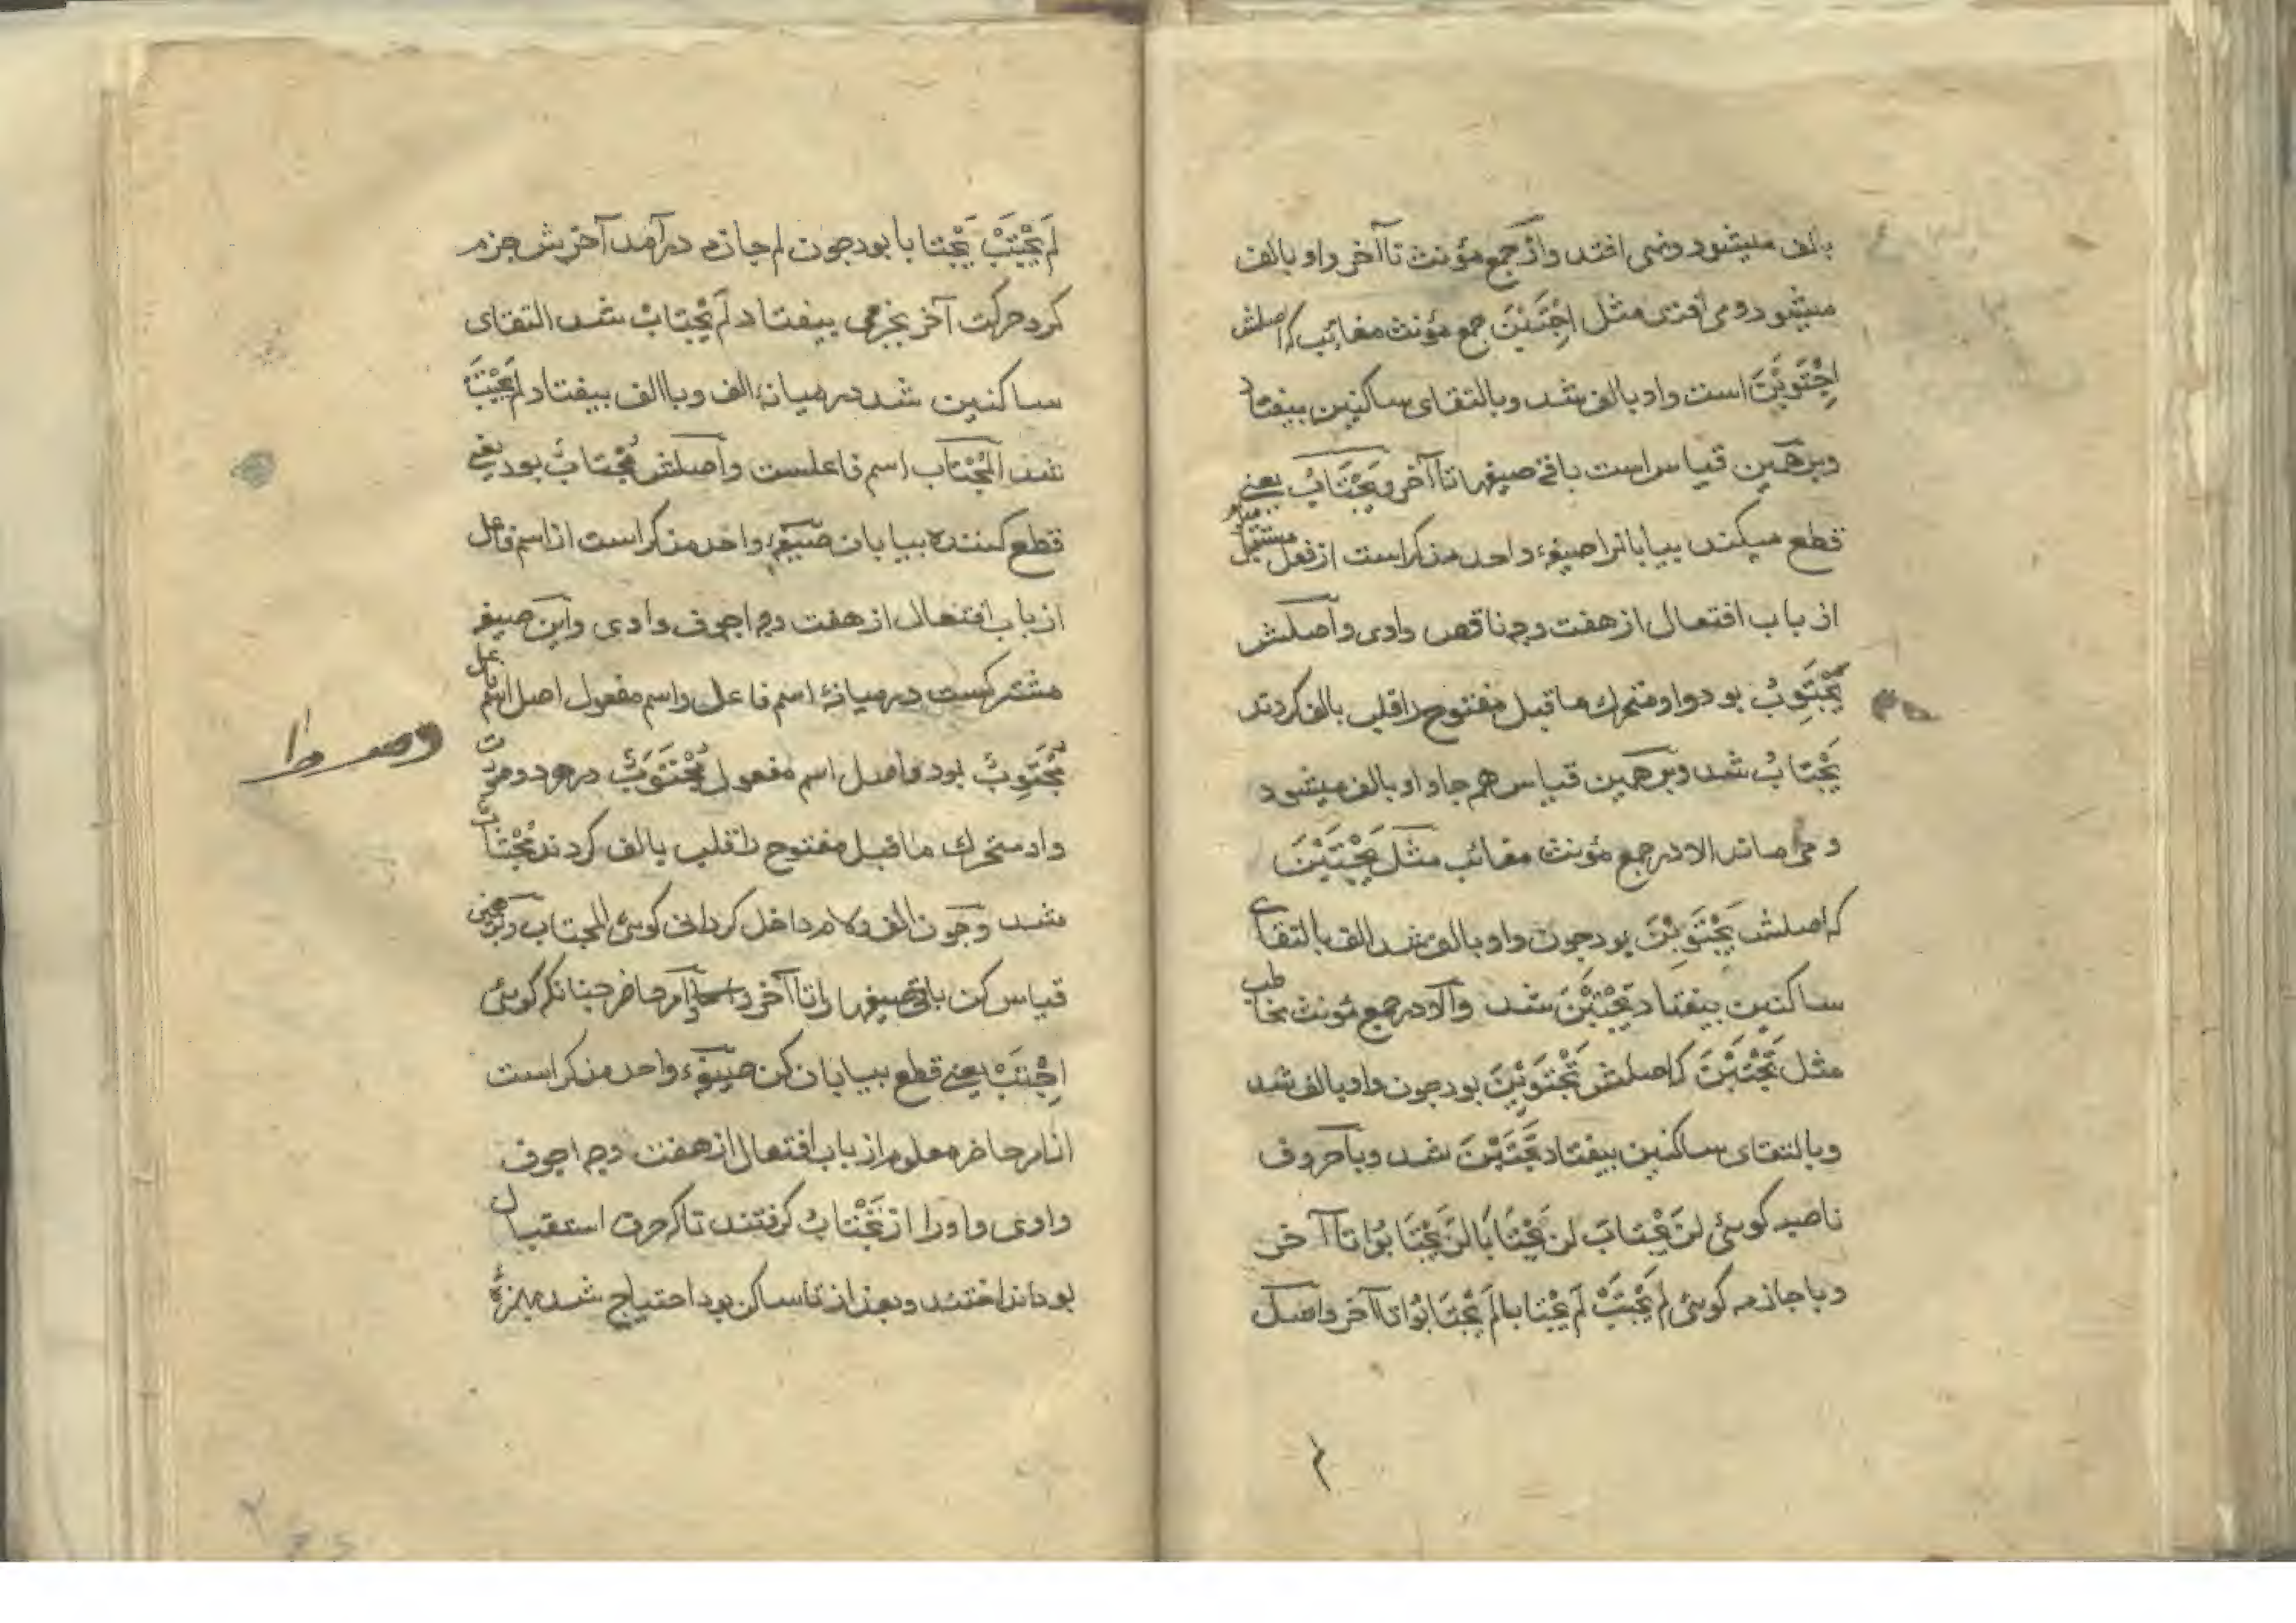 بالف میشود ونمی افتد واز جمع مؤنث تا آخر واو بالف
میشود ومی افتد مثل اِجْتَبْنَ جمع مؤنث مغائب که اصلش
اِجْتَوَبْنَ است واو بالف شد وبالتقای ساکنین بیفتاد
وبرهمین قیاس است باقی صیغها تا آخر ویَجْتَابُ یعنی
قطع میکند بیابانرا صیغهٔ واحد مذکر است از فعل مستقبل
از باب افتعال از هفت وجه ناقص وادی واصلش
یَجْتَوِبُ بود واو متحرك ماقبل مفتوح را قلب بالف کردند
یَجْتَابُ شد وبرهمین قیاس هم جا واو بالف میشود
ومی ماند الا در جمع مؤنث مغائب مثل یَجْتَبْنَ
که اصلش یَجْتَوِبْنَ بود چون واو بالف شد الف بالتقای
ساکنین بیفتاد یَجْتَبْنَ شد والا در جمع مؤنث مخاطب
مثل تَجْتَبْنَ که اصلش تَجْتَوِبْنَ بود چون واو بالف شد
وبالتقای ساکنین بیفتاد تَجْتَبْنَ شد وبا حروف
ناصبه کوبئی لَنْ یَجْتَابَ لَنْ یَجْتَابَا لَنْ یَجْتَابُوا تا آخر
وبا جازمه کوبئی لم یَجْتَبْ لَمْ یَجْتَابا لَمْ یَجْتَابُوا تا آخر واصل
۲
لَمْ یَجْتَبْ یَجْتابا بود چون لم جازم درآمد آخرش جزم
کرد حرکت آخر بجزمی بیفتاد لَمْ یَجْتابْ شد التقای
ساکنین شد در میانهٔ الف وبا الف بیفتاد لَمْ یَجْتَبْ
شد المُجْتاب اسم فاعلست واصلش مُجْتابٌ بود یعنی
قطع کننده بیابان صیغهٔ واحد مذکر است از اسم فاعل
از باب افتعال از هفت وجه اجوف وادی واین صیغه
مشترکست در میانهٔ اسم فاعل واسم مفعول اصل اسم فاعل
مُجْتَوِبٌ بود واصل اسم مفعول مُجْتَوَبٌ در هر دو صورت
واو متحرك ماقبل مفتوح را قلب بالف کردند مُجْتاب
شد وچون الف ولام داخل کردانی کوبئی المجتاب وبرهمین
قیاس کن باقی صیغها را تا آخر امر حاضر چنانکه کوبئی
اِجْتَبْ یعنی قطع بیابان کن صیغهٔ واحد مذکر است
از امر حاضر معلوم از باب افتعال از هفت وجه اجوف
وادی واورا از تَجْتابُ کرفتند تا که حرف استقبال
بود انداختند وبعد از تا ساکن بود احتیاج شد بهمزهٔ